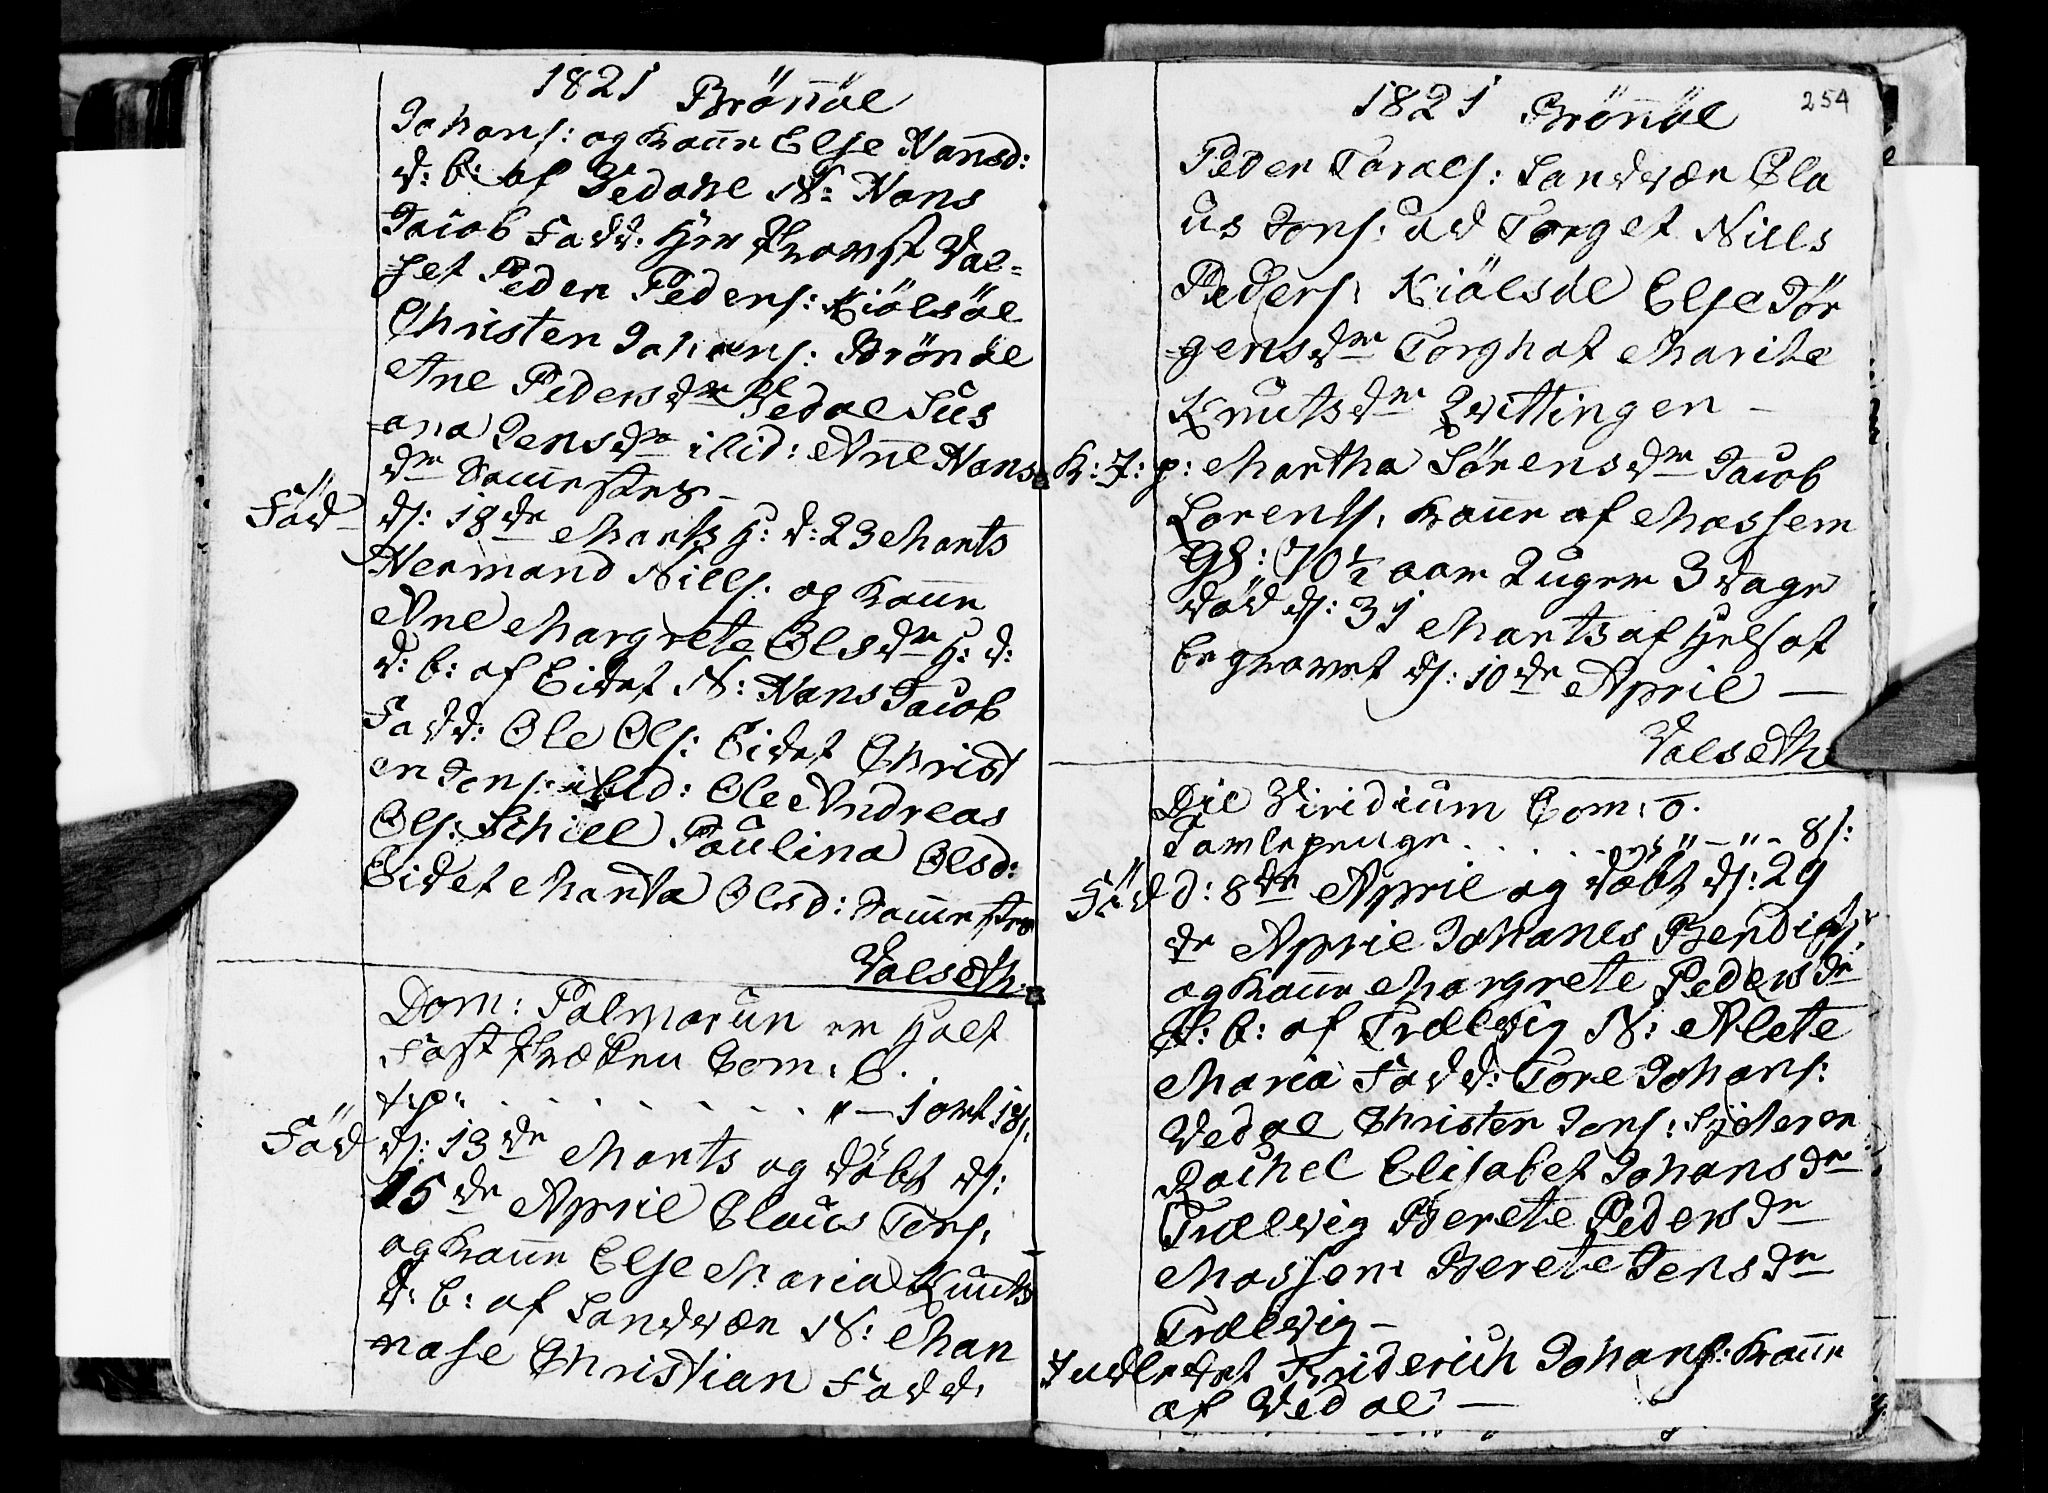 1821 Brönöe
Johans: og Kone Else Hansd:
d: b: af Vedahl N: Hans
Jacob Fadd: Her Provst Val=
set Peder Peders: Kiölsöe
Christen Johans: Brönöe
Ane Pedersdr Vedal Sus
ana Jensdr ibid: Ane Hans
dr
Föd d: 18de Marts h: d: 23 Marts
Hermand Nills: og Kone
Ane Margrete Olsdr h: d:
d: b: af Eidet N: Hans Jacob
Fadd: Ole Ols: Eidet Christ
en Jons: ibid: Ole Andreas
Ols: Schill Paulina Olsd:
Eidet Marta Olsd:
Valseth:
Dom: Palmarum er holt
Fast Præken Com: 6.
t. p. . . . . . . . . . " — 1 ort 18 s:
Föd d: 13de Marts og döbt d:
15de April Claus Tors:
og Kone Else Maria Knuds
d: b: af Sandvær N: Man
nase Christian Fadd:
254
1821 Brönöe
Peder Tarals: Sandvær Cla
us Jons: ad Torget Nills
Peders: Kiölsöe Else Jör
gensdr Torghat Marite
Knutsdr Qvittingen —
K: J: p: Martha Sörensdr Jacob
Lorents: Kone af Mossem
Gl: 70 1/2 aar 2 uger 3 dage
död d: 31 Marts af
begravet d: 10de April —
Valseth:
Die Viridium Com: 0.
Tavlepenge . . . . . " — " - 8 s:
Föd d: 8de April og döbt d: 29
de April Johanes Bendigs:
og Kone Margrete Pedersdr
d: b: af Trælvig N: Alete
Maria Fadd: Tore Johans:
Vedøe Christen Jons:
Rachel Elisabet Johansdr
Trælvig Berete Pedersdr
Mossem Berete Jensdr
Trælvig —
Indledet Friderich Johans: Kone
af Vedal —